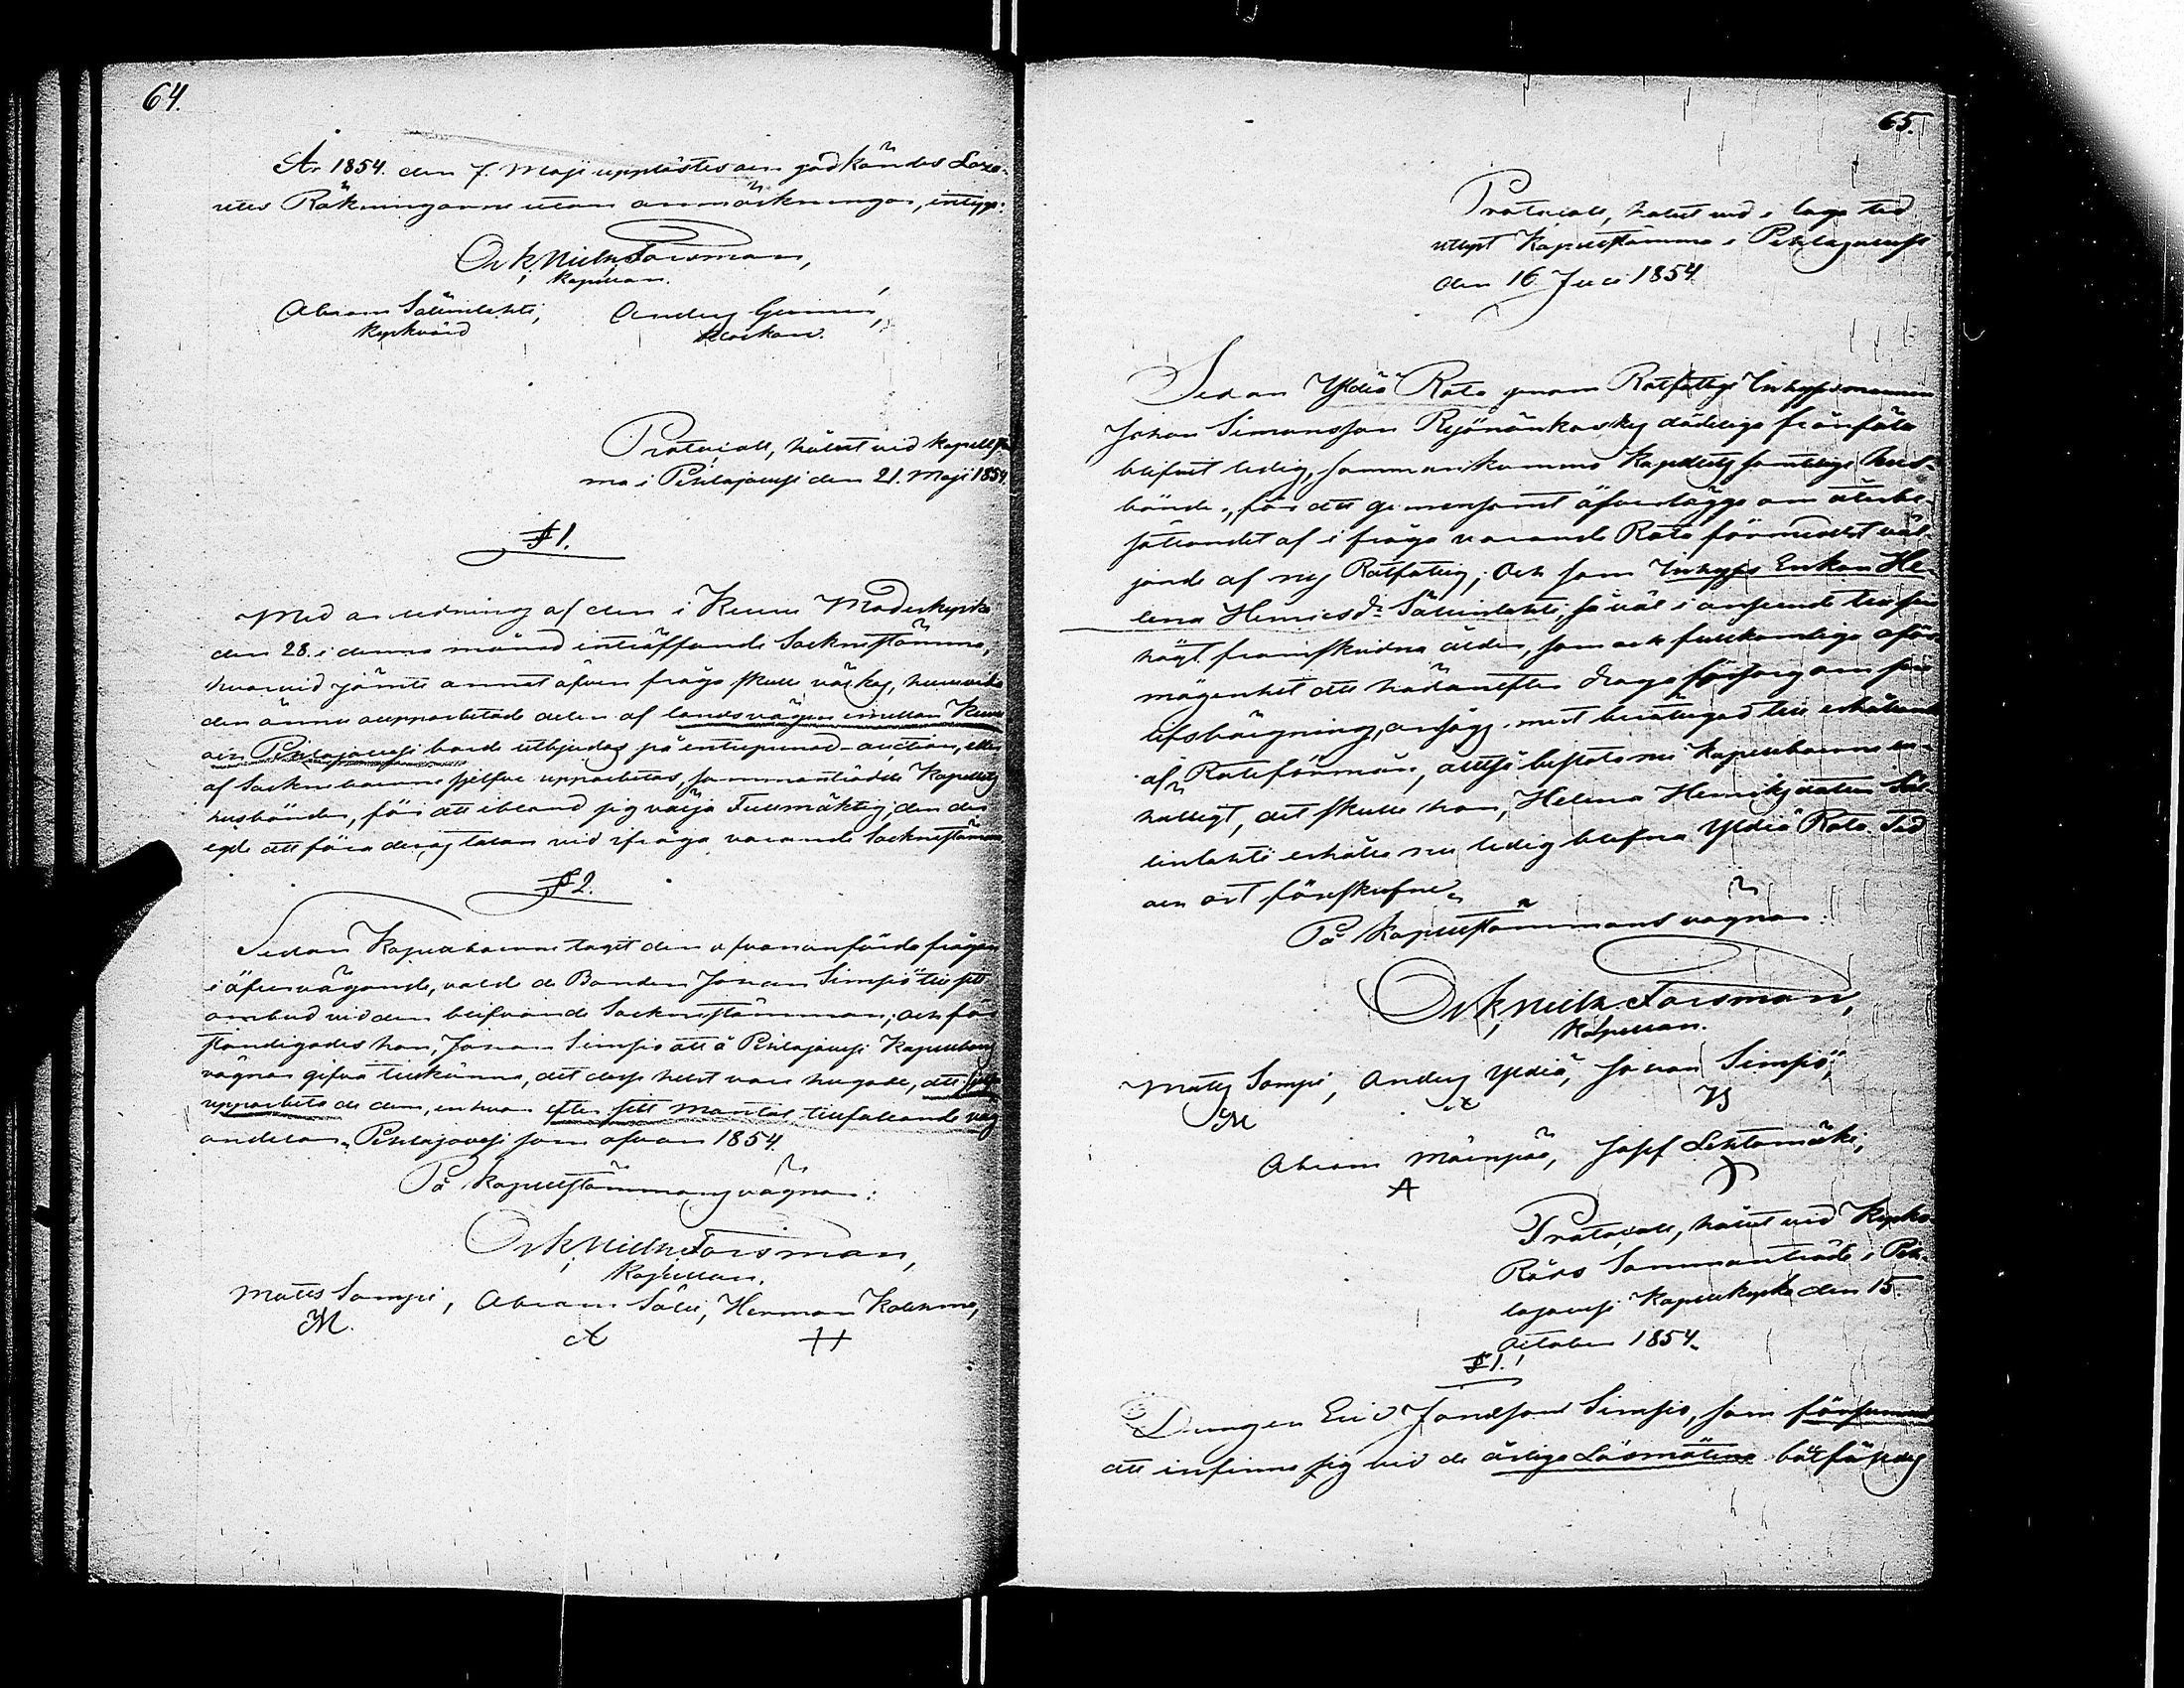 64.
År 1854. den 7. Maji upplästes och godkändes Laza-
retts Räkningarne utan anmärkningar, intyga:
Osk. Wilh. Forsman,
Kapellan.
Abram Sälinlahti, Anders
Kyrkvärd Klockare.
Protocoll, hållet vid Kapellstäm
ma i Pihlajavesi den 21. Maji 1854.
§ 1.
Med anledning af den i Keuru Moderkyrka
den 28. i denna månad inträffande Socknestämma,
hvarvid jämte annat äfven fråga skulle väckas, huruvida
den ännu oupparbetade delen af landsvägen emellan Keuru
och Pihlajavesi borde utbjudas på entreprenad-auction, eller
af Sockneboerne sjelfve upparbetas, sammanträdde Kapellets
husbönder, för att ibland sig välja Fullmäktig, den der
egde att föra deras talan vid ifråga varande Socknestämma
§ 2.
Sedan Kapellboerne tagit den ofvananförda frågan
i öfvervägande, valde de Bonden Johan Simpiö till sitt
ombud vid den blifvande Socknestämman, och för
ständigades han, Johan Simpiö att å Pihlajavesi Kapellboers
vägnar gifva tillkänna, det desse helst vore hugade, att sjelfve
upparbeta de dem, enhvar efter sitt Mantal tillfallande väg
andelar. Pihlajavesi som ofvan 1854.
På Kapellstämmans vägnar:
Osk. Wilh. Forsman,
Kapellan.
Matts Sampi, Abram Säli, Herman Kalkma,
M. A H
65.
Protocoll, hållet vid i laga tid
utlyst Kapellstämma i Pihlajavesi
den 16 Juli 1854.
Sedan Yldiö Rote genom Rotfattige Inhysesmannen
Johan Simonsson Ryönänkoskis dödeliga frånfälle
blifvit ledig, sammankommo Kapellets samtlige hus-
bönder, för att gemensamt öfverlägga om återbe-
sättandet af i fråga varande Rote förmedelst väl-
jande af ny Rotfattig; Och som Inhyses Enkan He-
lena Henricsdr Sälinlahti, så väl i anseende till sin
högt framskridna ålder, som ock fullkomliga oför-
mögenhet att hädanefter draga försorg om sin
lifsbärgning, ansågs mest berättigad till erhållande
af Roteförmån, alltså beslöto nu Kapellboerne en-
hälligt, att skulle hon, Helena Henriksdotter Säl-
inlahti erhålla nu ledig blefna Yldiö Rote. Tid
och ort föreskrefne.
På Kapellstämmans vägnar:
Osk. Wilh. Forsman,
Kapellan.
Matts Sampi, Anders Yldiö, Johan Simpiö,
M A
Abram Mäenpää, Josef Lehtomäki,
A
Protocoll, hållet vid Kyrko-
Råds Sammanträde i Pih-
lajavesi Kapellkyrka den 15.
October 1854.
§ 1.
Drängen Eric Johansson Simpiö, som försummat
att infinna sig vid de årliga Läsmötena botfäldes